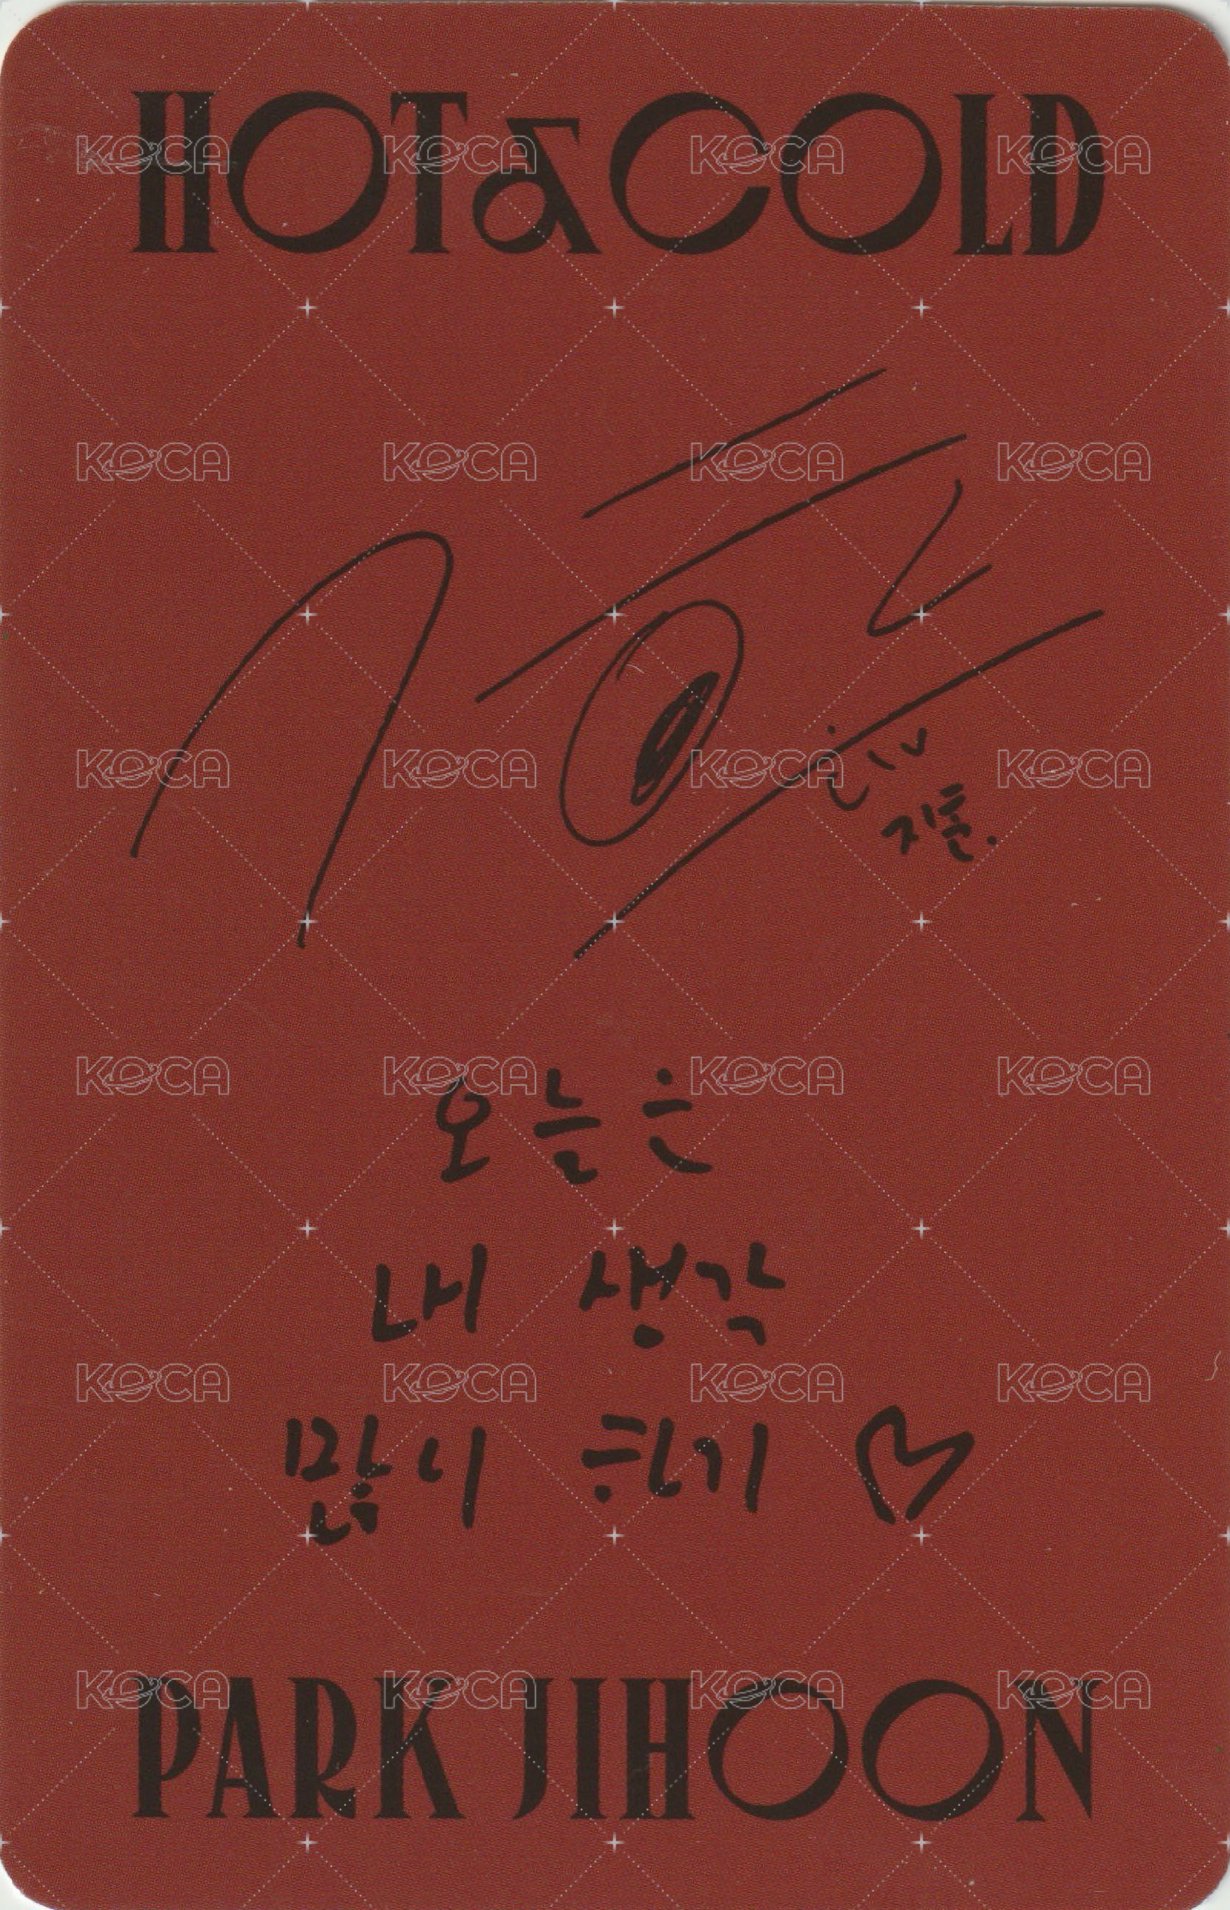 HOT&COLD
지훈.
오늘은
내 생각
많이 하기 ♡
PARK JIHOON
KOCA